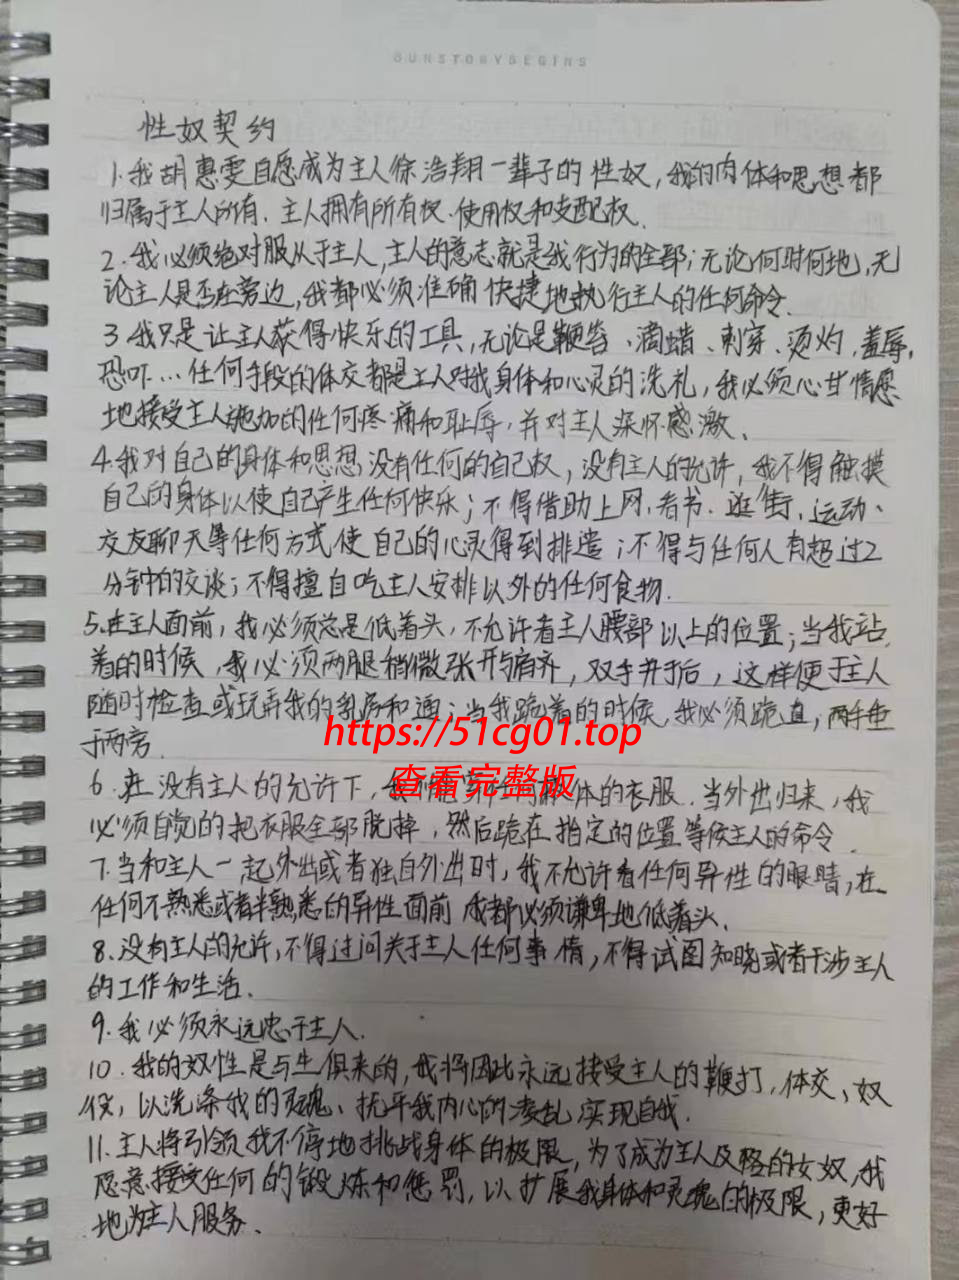 OURSTORYBEGINS
性奴契约
1.我胡惠雯自愿成为主人徐浩翔一辈子的性奴,我的肉体和思想都
归属于主人所有.主人拥有所有权.使用权和支配权.
2.我必须绝对服从于主人,主人的意志就是我行为的全部;无论何时何地,无
论主人是否在旁边,我都必须准确快捷地执行主人的任何命令.
3.我只是让主人获得快乐的工具,无论是鞭笞、滴蜡、刺穿、烫灼,羞辱,
恐吓…任何手段的体交都是主人对我身体和心灵的洗礼,我必须心甘情愿
地接受主人施加的任何疼痛和耻辱,并对主人深怀感激、
4.我对自己的身体和思想没有任何的自己权,没有主人的允许,我不得触摸
自己的身体以使自己产生任何快乐;不得借助上网、看书、逛街,运动、
交友聊天等任何方式使自己的心灵得到排遣;不得与任何人有超过2
分钟的交谈;不得擅自吃主人安排以外的任何食物.
5.在主人面前,我必须总是低着头,不允许看主人腰部以上的位置;当我站
着的时候,我必须两腿稍微张开与肩齐,双手并于后,这样便于主人
随时检查或玩弄我的乳房和通;当我跪着的时候,我必须跪直,两手垂
于两旁.
https://51cg01.top
查看完整版
6.在没有主人的允许下,我体的衣服.当外出归来,我
必须自觉的把衣服全部脱掉,然后跪在指定的位置等候主人的命令.
7.当和主人一起外出或者独自外出时,我不允许看任何异性的眼睛,在
任何不熟悉或者半熟悉的异性面前都必须谦卑地低着头.
8.没有主人的允许,不得过问关于主人任何事情,不得试图知晓或者干涉主人
的工作和生活.
9.我必须永远忠于主人.
10.我的奴性是与生俱来的,我将因此永远接受主人的鞭打,体交、奴
役,以洗涤我的灵魂、抚平我内心的凌乱,实现自我.
11.主人将引领我不停地挑战身体的极限,为了成为主人及格的女奴,我
愿意接受任何的锻炼和惩罚,以扩展我身体和灵魂的极限,更好
地为主人服务.